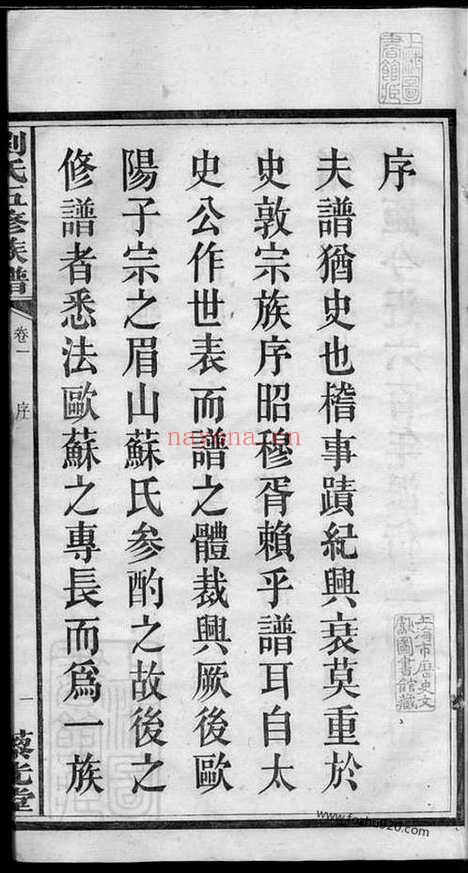 序
夫譜猶史也稽事蹟紀興衰莫重於
史敦宗族序昭穆胥賴乎譜耳自太
史公作世表而譜之體裁興厥後歐
陽子宗之眉山蘇氏參酌之故後之
修譜者悉法歐蘇之專長而為一族
劉氏五修族譜
卷一
序
一
上海市歷史文
獻圖書館藏
nayona.cn
www.fozhu920.com